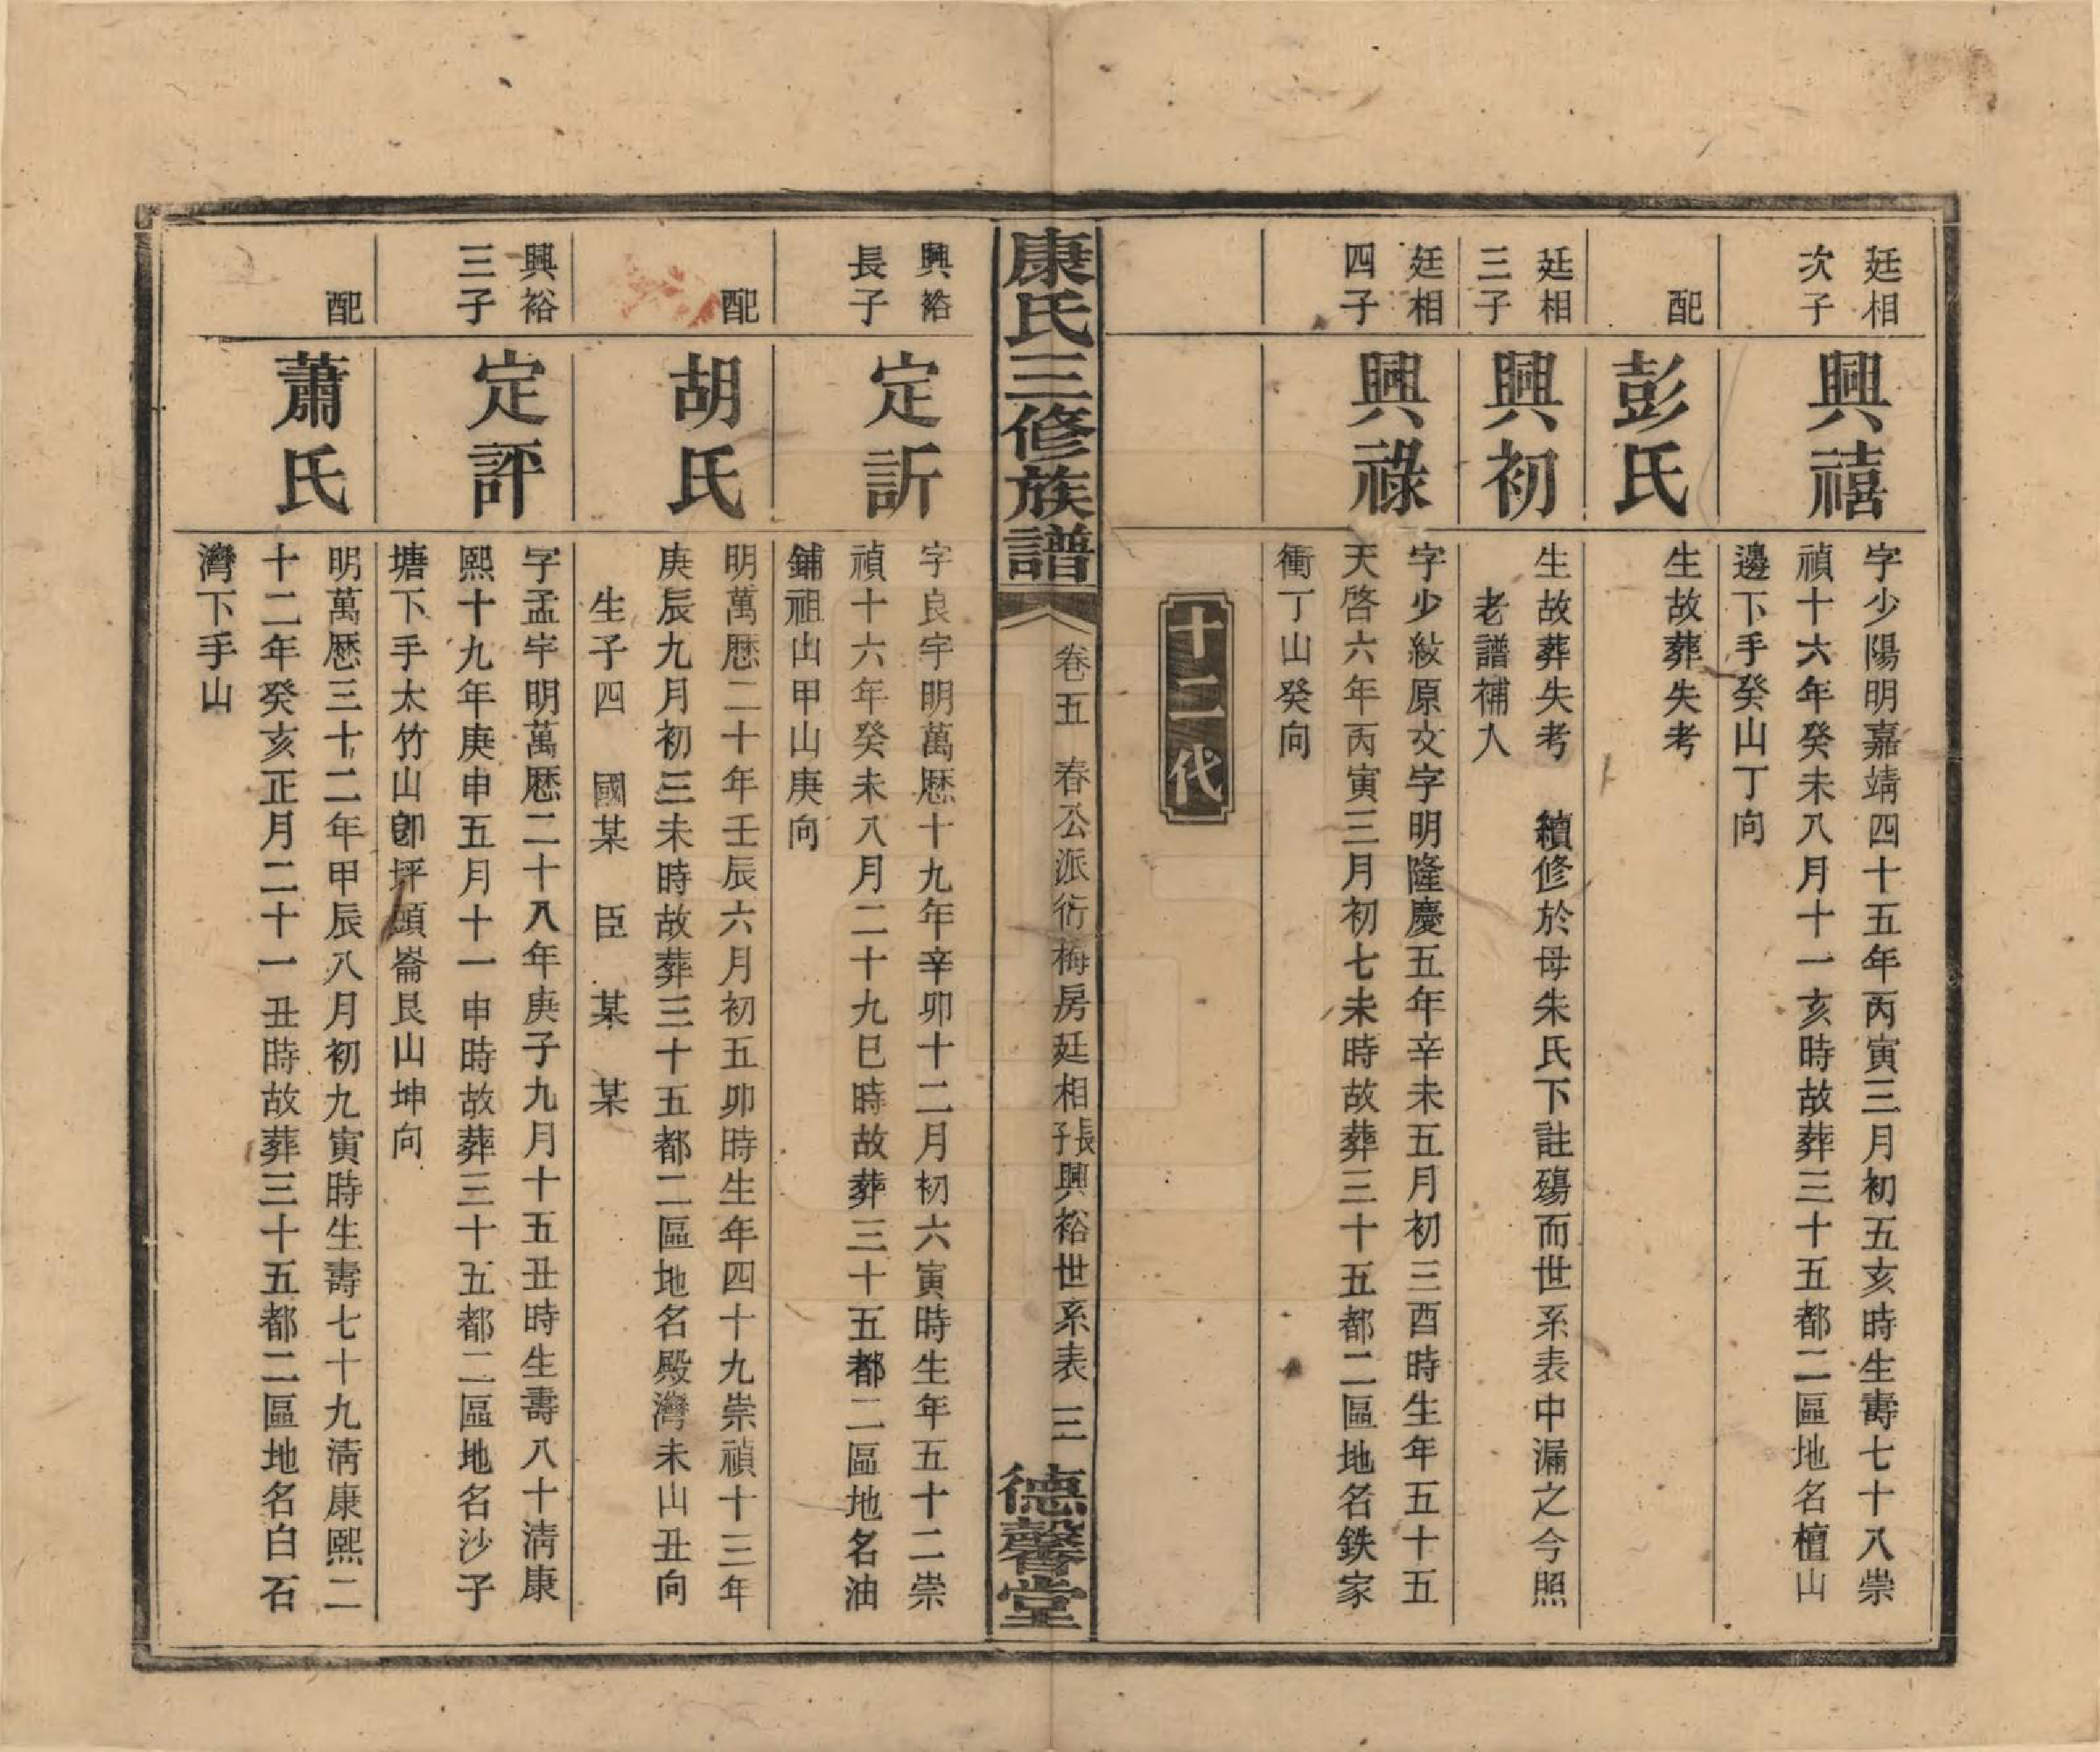 廷相
次子
興禧
字少陽明嘉靖四十五年丙寅三月初五亥時生壽七十八崇
禎十六年癸未八月十一亥時故葬三十五都二區地名檀山
邊下手癸山丁向
配
彭氏
生故葬失考
廷相
三子
興初
生故葬失考 續修於母朱氏下註殤而世系表中漏之今照
老譜補入
廷相
四子
興祿
字少紋原文字明隆慶五年辛未五月初三酉時生年五十五
天啓六年丙寅三月初七未時故葬三十五都二區地名鉄家
衝丁山癸向
十二代
康氏三修族譜
卷五 春公派衍梅房廷相長子興裕世系表 三
德馨堂
興裕
長子
定訢
字良宇明萬歷十九年辛卯十二月初六寅時生年五十二崇
禎十六年癸未八月二十九巳時故葬三十五都二區地名油
鋪祖山甲山庚向
配
胡氏
明萬歷二十年壬辰六月初五卯時生年四十九崇禎十三年
庚辰九月初三未時故葬三十五都二區地名殿灣未山丑向
生子四 國某 臣 某 某
興裕
三子
定評
字孟宇明萬歷二十八年庚子九月十五丑時生壽八十淸康
熙十九年庚申五月十一申時故葬三十五都二區地名沙子
塘下手太竹山卽坪頭崙艮山坤向
配
蕭氏
明萬歷三十二年甲辰八月初九寅時生壽七十九淸康熙二
十二年癸亥正月二十一丑時故葬三十五都二區地名白石
灣下手山